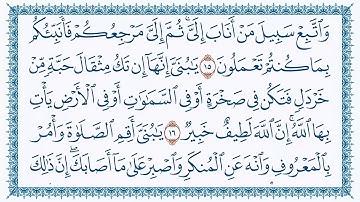 وَٱتَّبِعْ سَبِيلَ مَنْ أَنَابَ إِلَىَّ ۚ ثُمَّ إِلَىَّ مَرْجِعُكُمْ فَأُنَبِّئُكُم
بِمَا كُنتُمْ تَعْمَلُونَ ١٥ يَـٰبُنَىَّ إِنَّهَآ إِن تَكُ مِثْقَالَ حَبَّةٍ مِّنْ
خَرْدَلٍ فَتَكُن فِى صَخْرَةٍ أَوْ فِى ٱلسَّمَـٰوَٰتِ أَوْ فِى ٱلْأَرْضِ يَأْتِ
بِهَا ٱللَّهُ ۚ إِنَّ ٱللَّهَ لَطِيفٌ خَبِيرٌ ١٦ يَـٰبُنَىَّ أَقِمِ ٱلصَّلَوٰةَ وَأْمُرْ
بِٱلْمَعْرُوفِ وَٱنْهَ عَنِ ٱلْمُنكَرِ وَٱصْبِرْ عَلَىٰ مَآ أَصَابَكَ ۖ إِنَّ ذَٰلِكَ